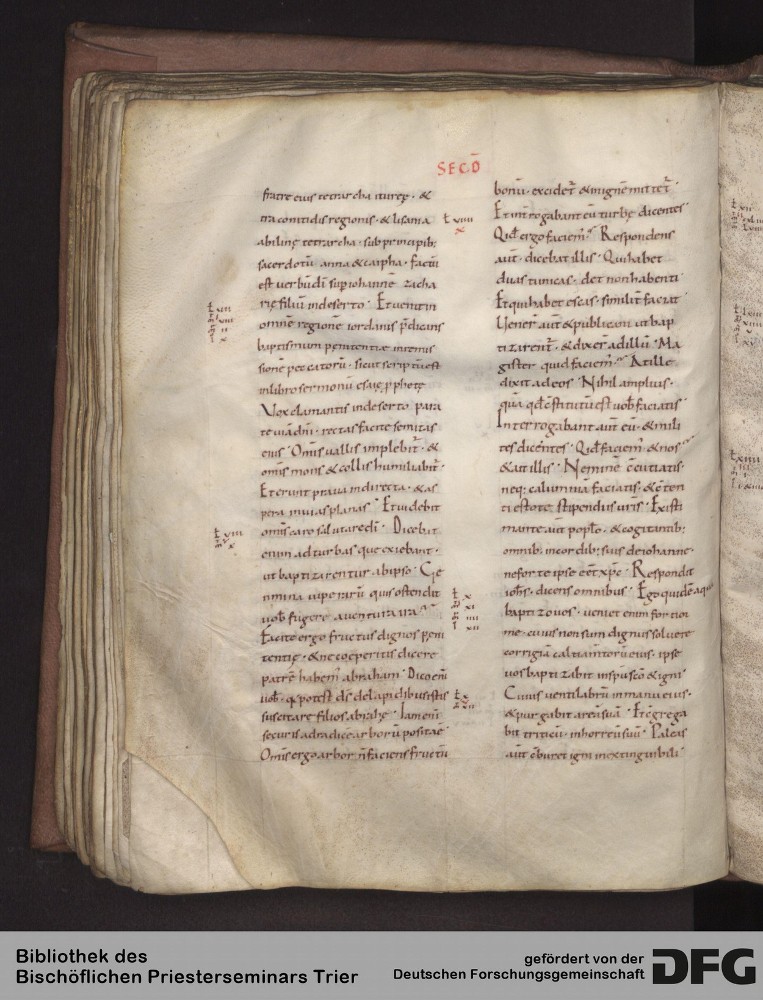 SECD̄
fratre eius tetrarcha itureę · &
traconitidis regionis · & lisania
abilinę tetrarcha · sub principib;
sacerdotū anna & caipha · factū
est uerbū dn̄i sup iohannē zacha
rię filiū in deserto · Et uenit in
omnē regionē iordanis p̄dicans
baptismum penitentiae in remis
sionē peccatorū · sicut scriptū est
in libro sermonū esaię pphetę
Vox clamantis in deserto para
te uiā dn̄i · rectas facite semitas
eius · Om̄is uallis implebit̄ · &
om̄is mons & collis humiliabit̄ ·
Et erunt praua in directa · & as
pera in uias planas · Et uidebit
om̄is caro salutare dī · Dicebat
enim ad turbas que exiebant ·
ut baptizarentur ab ipso · Ge
nimina uiperarū quis ostendit
uob̄ fugere a uentura ira
Facite ergo fructus dignos peni
tentię · & ne coeperitis dicere
patrē habem̄ abraham · Dico eni
uob̄ · q̄a potest ds̄ de lapidibus istis
suscitare filios abrahę · Iam eni
securis ad radice arborū posita ē
Om̄is ergo arbor n̄ faciens fructū
bonū · excidet̄ & in ignē mittet̄ ·
Et int̄rogabant eū turbę dicentes
Qid ergo faciem̄ · Respondens
aut̄ · dicebat illis · Qui habet
duas tunicas · det non habenti
Et qui habet escas · similit̄ faciat
Uener̄ aut̄ & publicani ut bap
tizarent̄ · & dixer̄ ad illū · Ma
gister quid faciem̄ · At ille
dixit ad eos · Nihil amplius ·
quā qd̄ c̄stitutū est uob̄ faciatis ·
Interrogabant aut̄ eū · & mili
tes dicentes · Qid faciem̄ · & nos
& ait illis · Neminē c̄cutiatis ·
neq; calumniā faciatis · & c̄ten
ti estote stipendiis ur̄is · Existi
mante aut̄ poplo · & cogitantib;
omnib; in cordib; suis de iohanne ·
ne forte ipse eēt xp̄c · Respondit
iohs̄ · dicens omnibus · Ego quidē aqua
baptizo uos · ueniet enim fortior
me · cuius non sum dignus soluere
corrigiā caltiamtorū eius · ipse
uos baptizabit in spū scō & igni ·
Cuius uentilabrū in manu eius ·
& purgabit areā suā · Et c̄grega
bit triticū · in horreū suū · Paleas
aut̄ c̄buret igni inextinguibili
Bibliothek des
Bischöflichen Priesterseminars Trier
gefördert von der
Deutschen Forschungsgemeinschaft
DFG